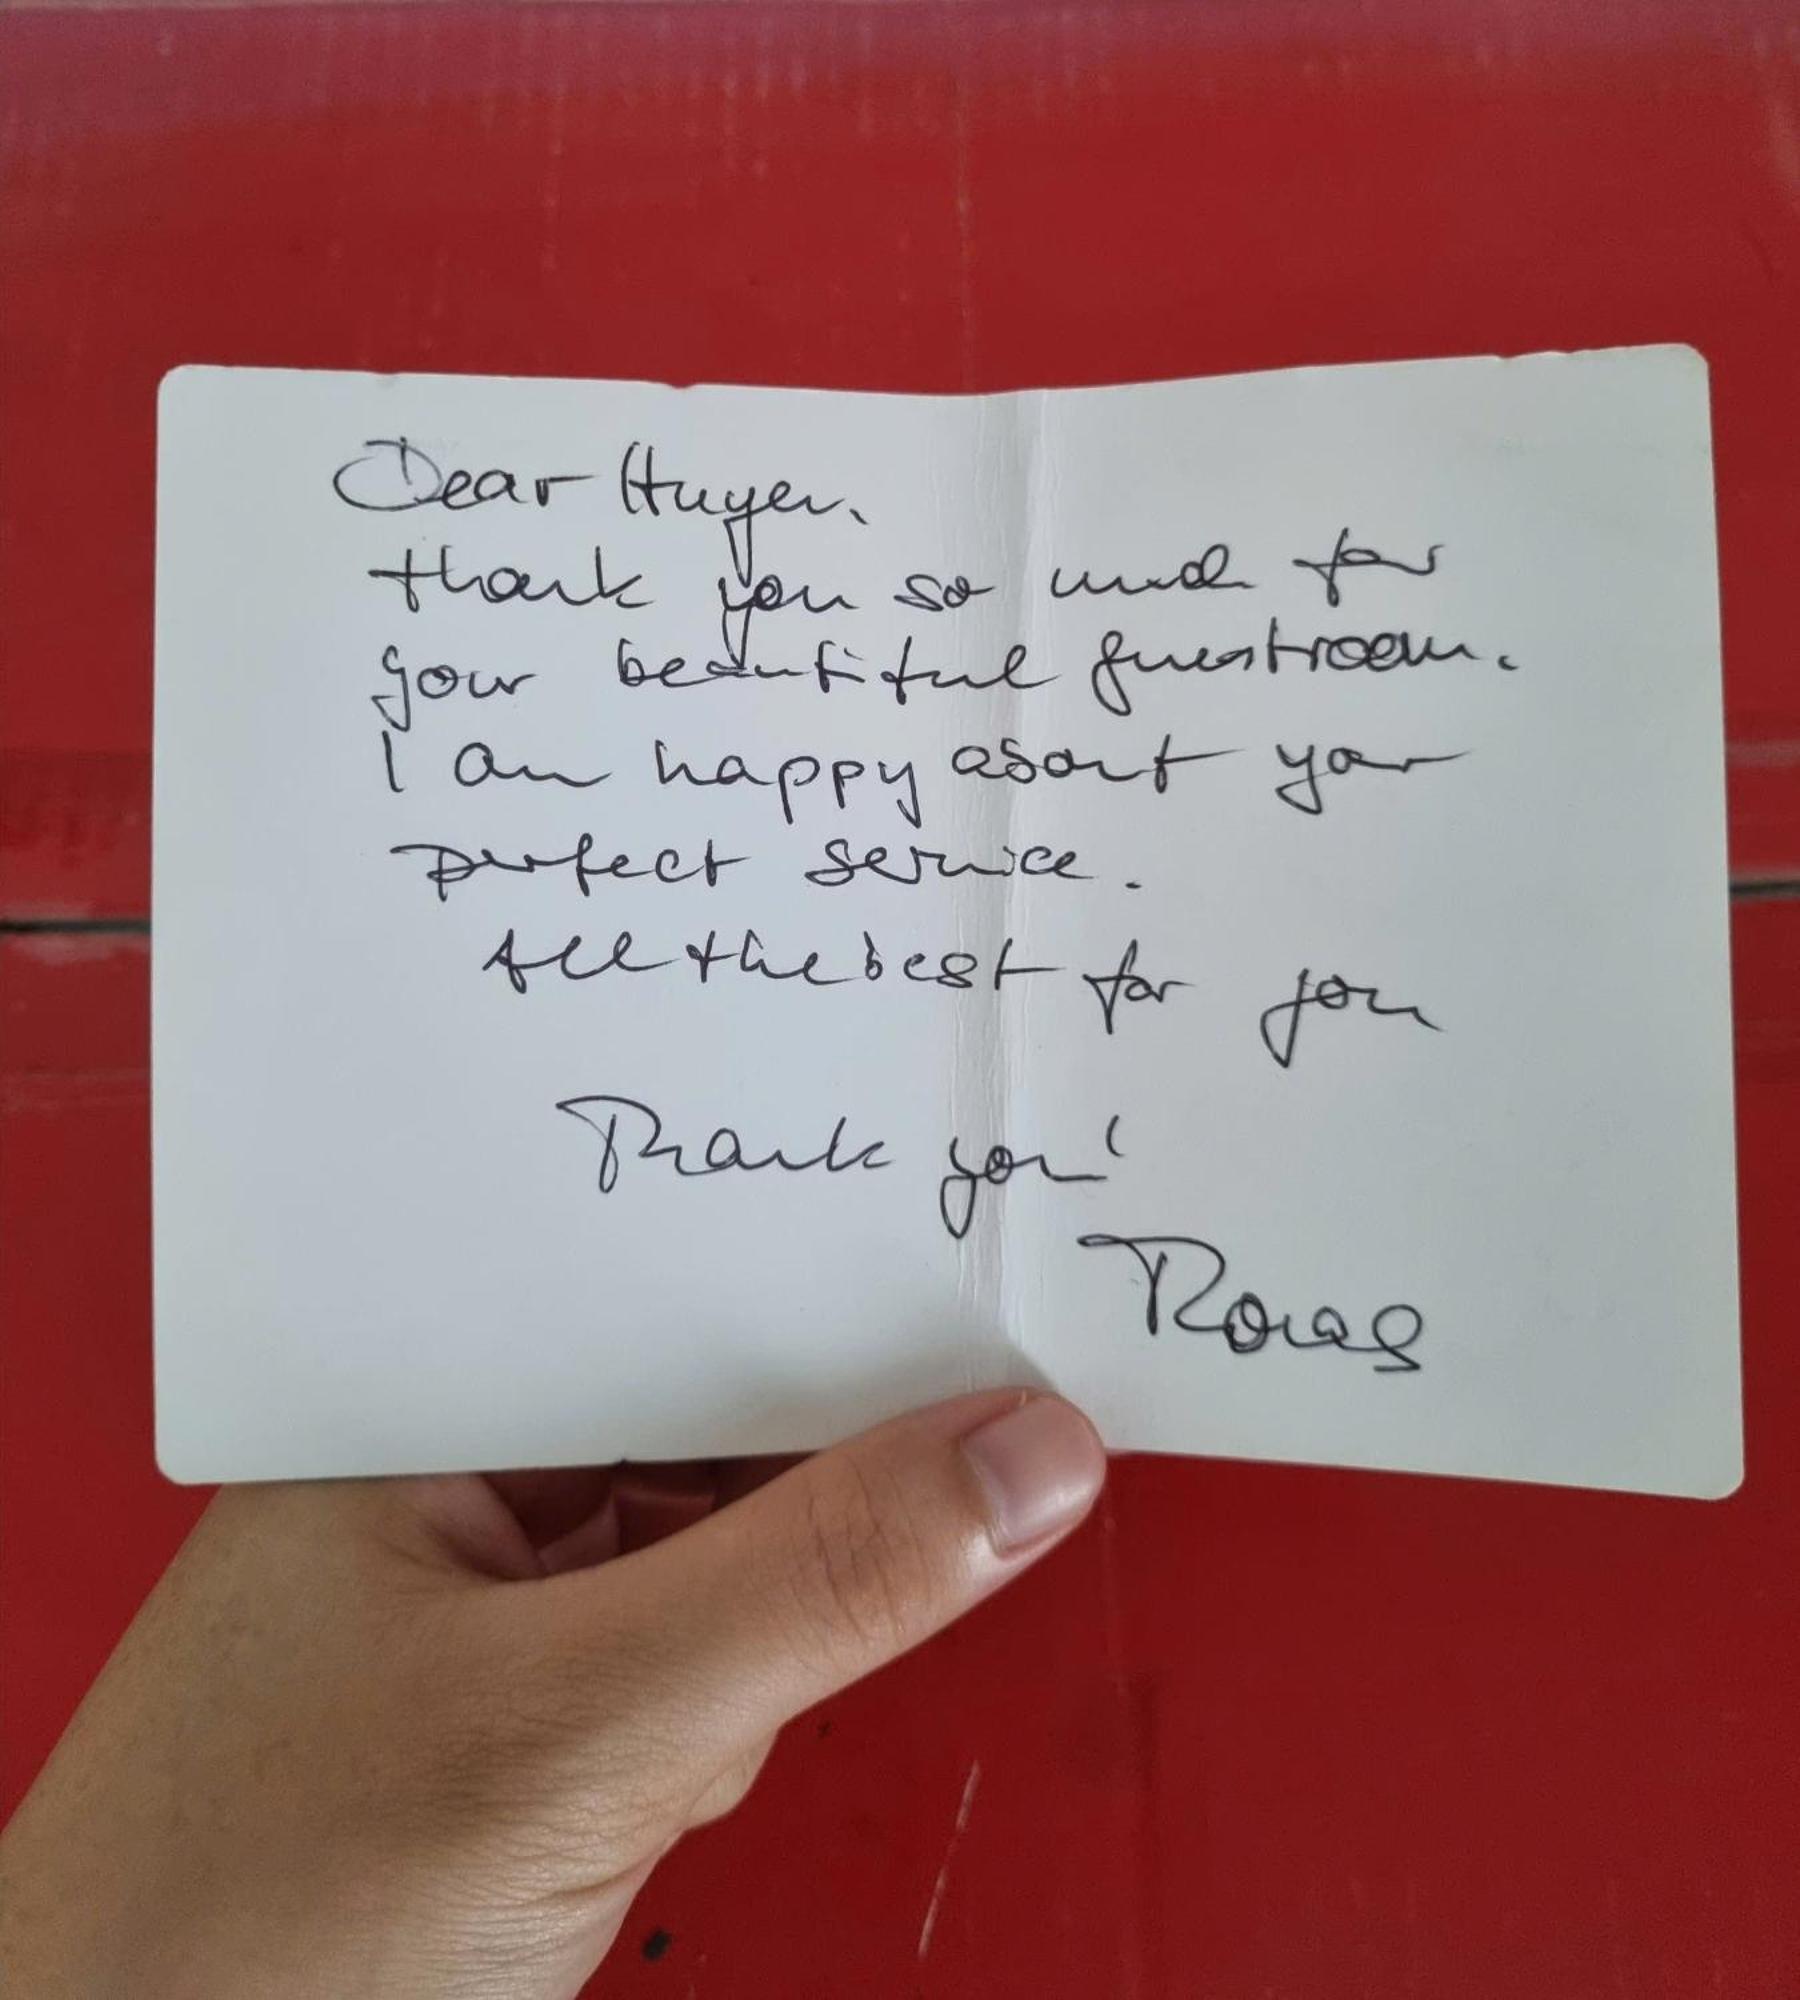 Dear Huyen,
thank you so much for
your beautiful guestroom.
I am happy about your
perfect service.
All the best for you
Thank you!